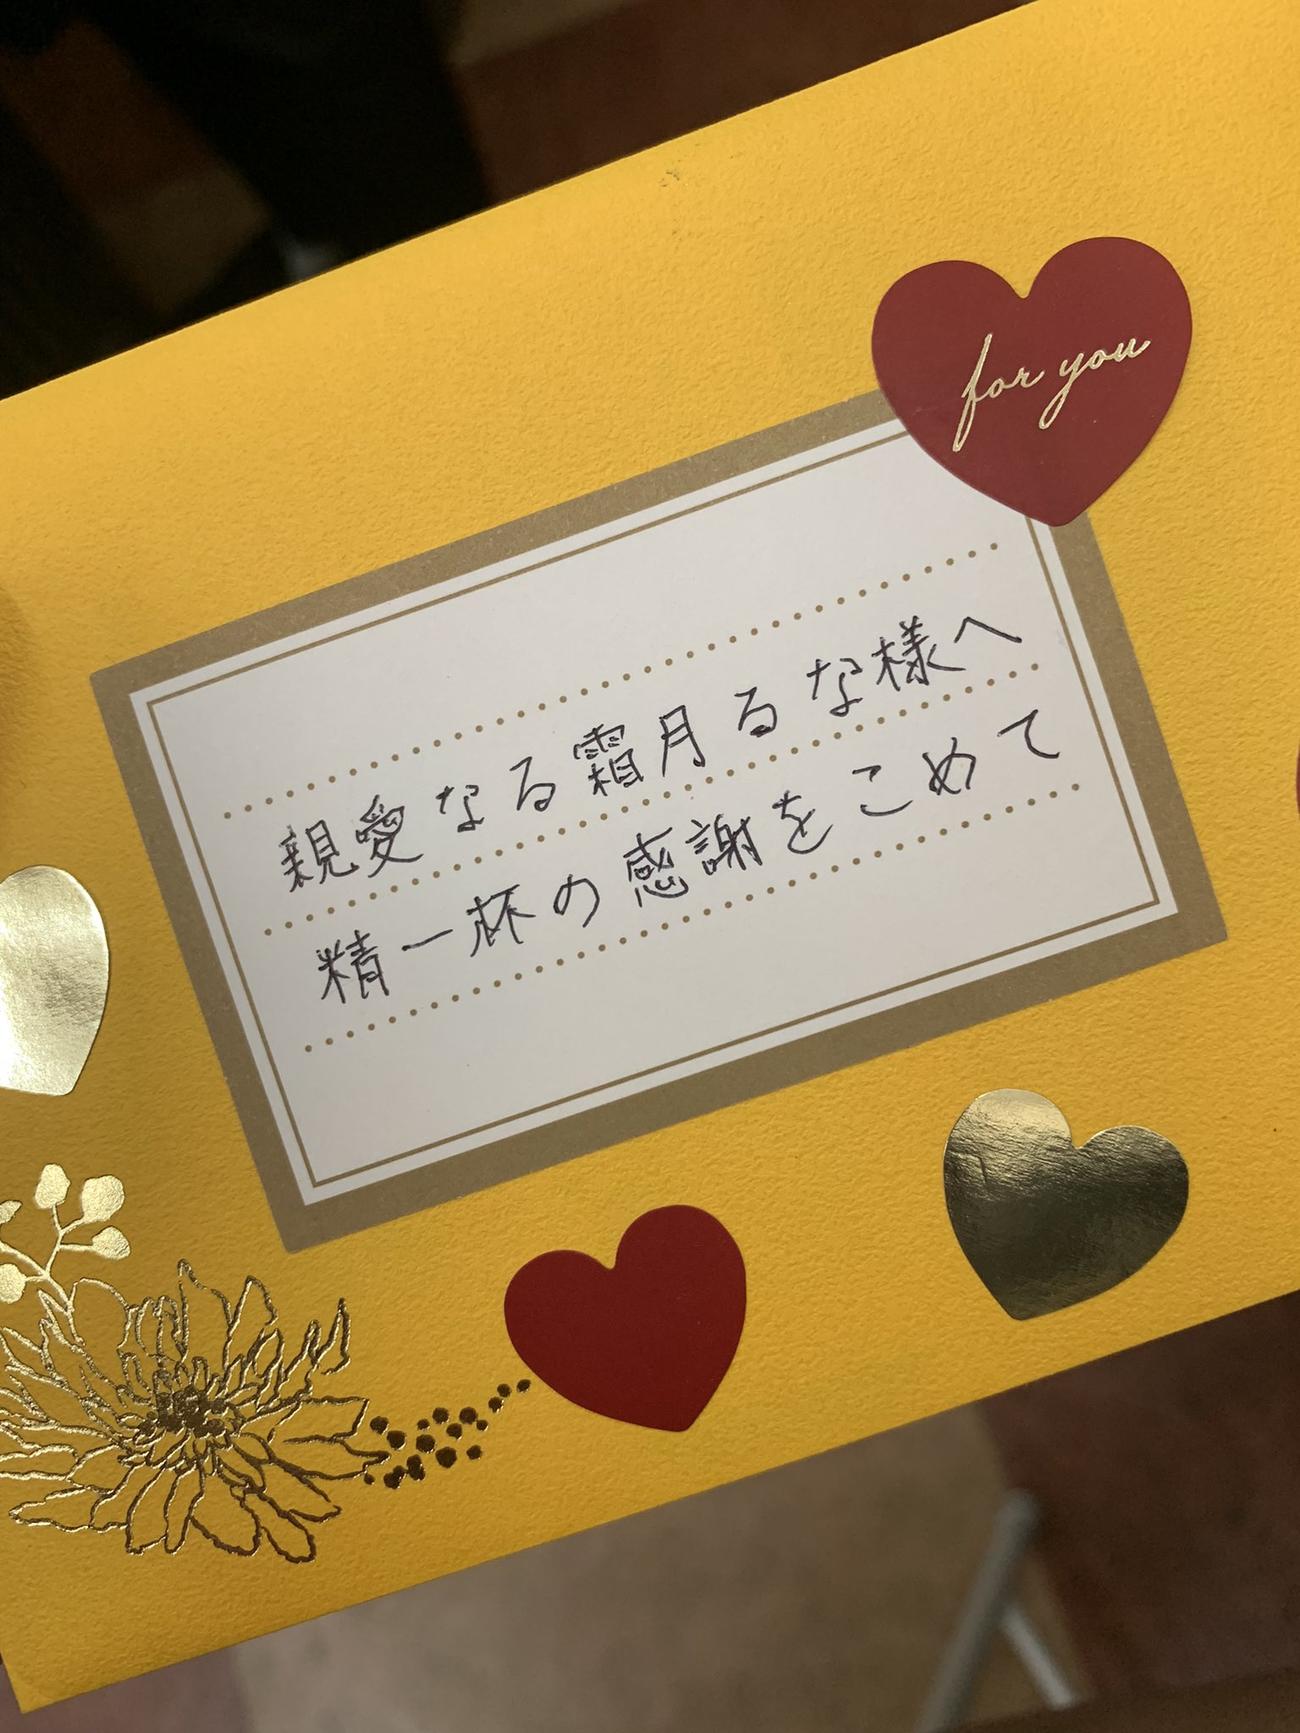 for you
親愛なる霜月るな様へ
精一杯の感謝をこめて